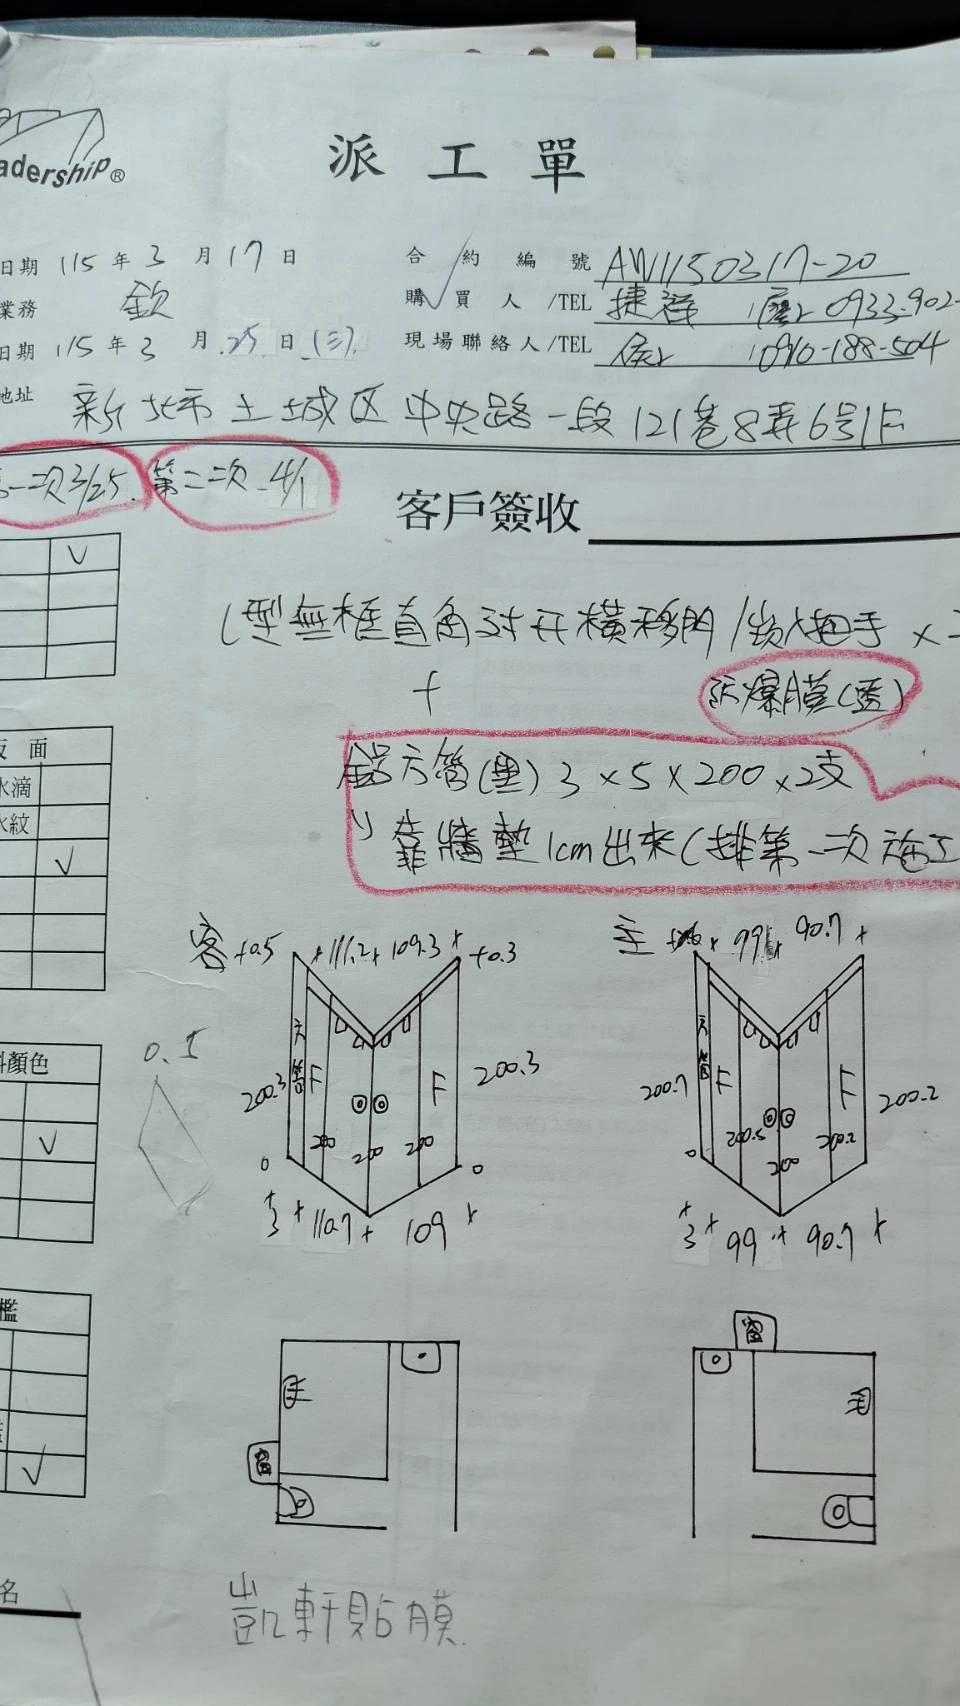 adership®
派工單
日期 115年3月17日
合約編號 AW1150317-20
業務 欽
購買人/TEL 捷祥 0933-902-
日期 115年3月25日(三)
現場聯絡人/TEL 0910-188-504
地址 新北市土城区中央路一段121巷8弄6号1F
第一次3/25.
第二次 4/1
客戶簽收
V
L型無框直角对开橫移門/
+
防爆膜(透)
鋁方管(黑) 3×5×200×2支
靠牆墊1cm出來(排第一次施工
面
水滴
水紋
V
客 +0.5 111.2 109.3 +0.3
主 99 90.7
方管 F F
200.3 200.3
200 200 200
0 0
3 110.7 109
方管 F F
200.7 200.2
200.5 200 200.2
0 0
3 99 90.7
顏色
V
0.5
檻
V
窗
窗
名
凱軒貼膜